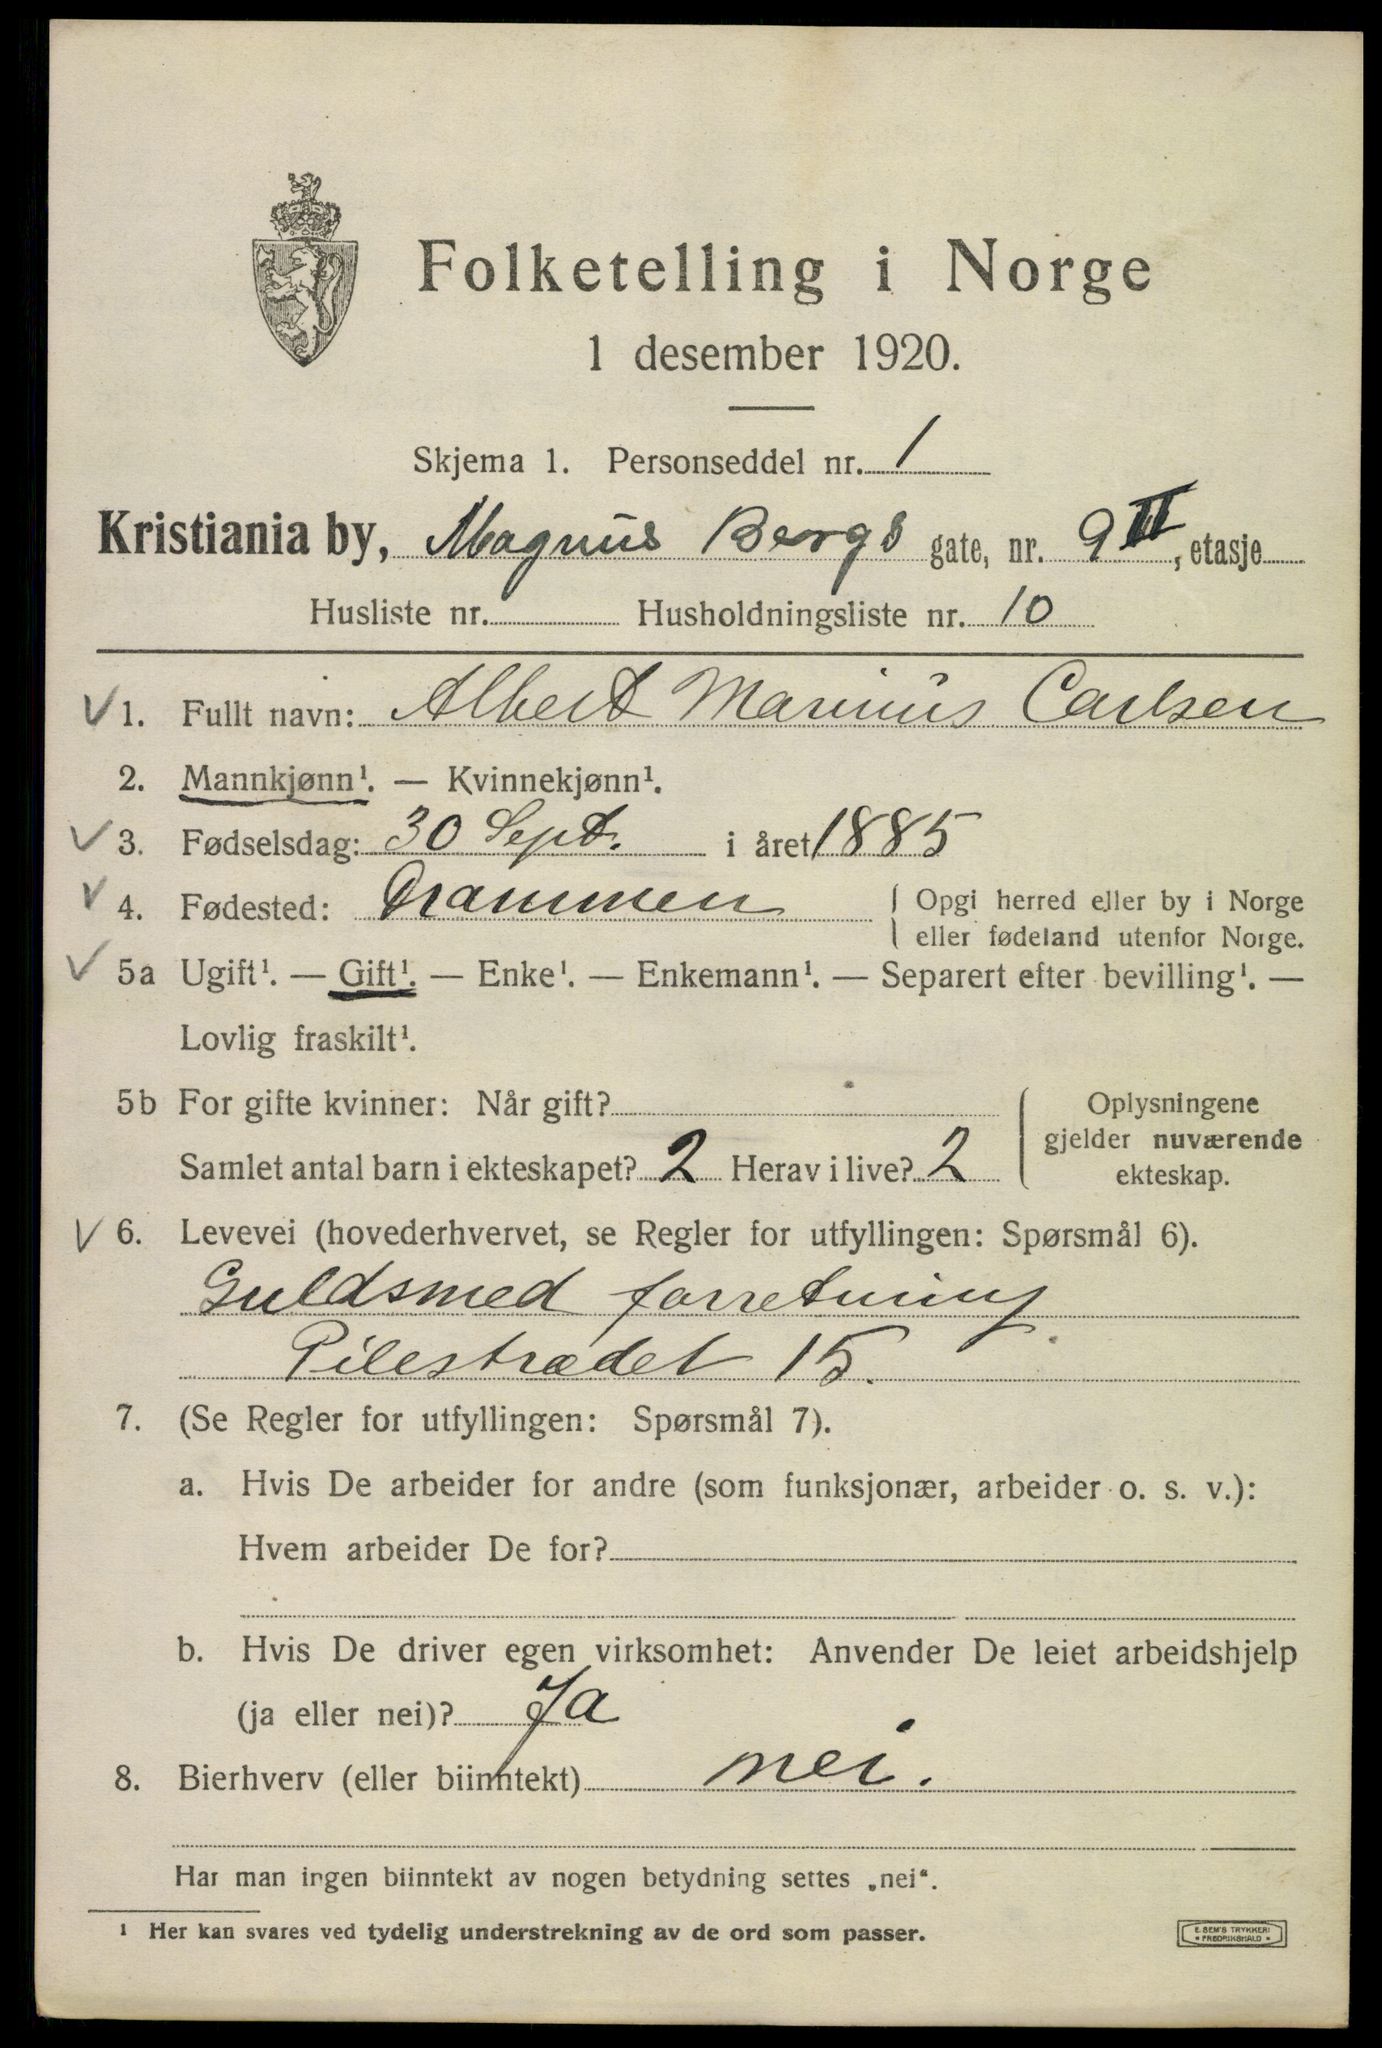 Folketelling i Norge
1 desember 1920.
Skjema 1. Personseddel nr. 1
Kristiania by, Magnus Bergs gate, nr. 9 II, etasje
Husliste nr. Husholdningsliste nr. 10
1. Fullt navn: Albert Marinius Carlsen
2. Mannkjønn¹. — Kvinnekjønn¹.
3. Fødselsdag: 30 Sept. i året 1885
4. Fødested: Drammen { Opgi herred eller by i Norge
eller fødeland utenfor Norge.
5a Ugift¹. — Gift¹. — Enke¹. — Enkemann¹. — Separert efter bevilling¹. —
Lovlig fraskilt¹.
5b For gifte kvinner: Når gift?
Samlet antal barn i ekteskapet? 2 Herav i live? 2
{ Oplysningene
gjelder nuværende
ekteskap.
6. Levevei (hovederhvervet, se Regler for utfyllingen: Spørsmål 6).
Guldsmed forretning
Pilestrædet 15.
7. (Se Regler for utfyllingen: Spørsmål 7).
a. Hvis De arbeider for andre (som funksjonær, arbeider o. s. v.):
Hvem arbeider De for?
b. Hvis De driver egen virksomhet: Anvender De leiet arbeidshjelp
(ja eller nei)? Ja
8. Bierhverv (eller biinntekt) nei.
Har man ingen biinntekt av nogen betydning settes „nei“.
¹ Her kan svares ved tydelig understrekning av de ord som passer.
E. SEM'S TRYKKERI
• FREDRIKSHALD •